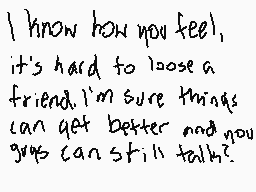 I know how you feel,
it's hard to loose a
friend. I'm sure things
can get better and you
guys can still talk?